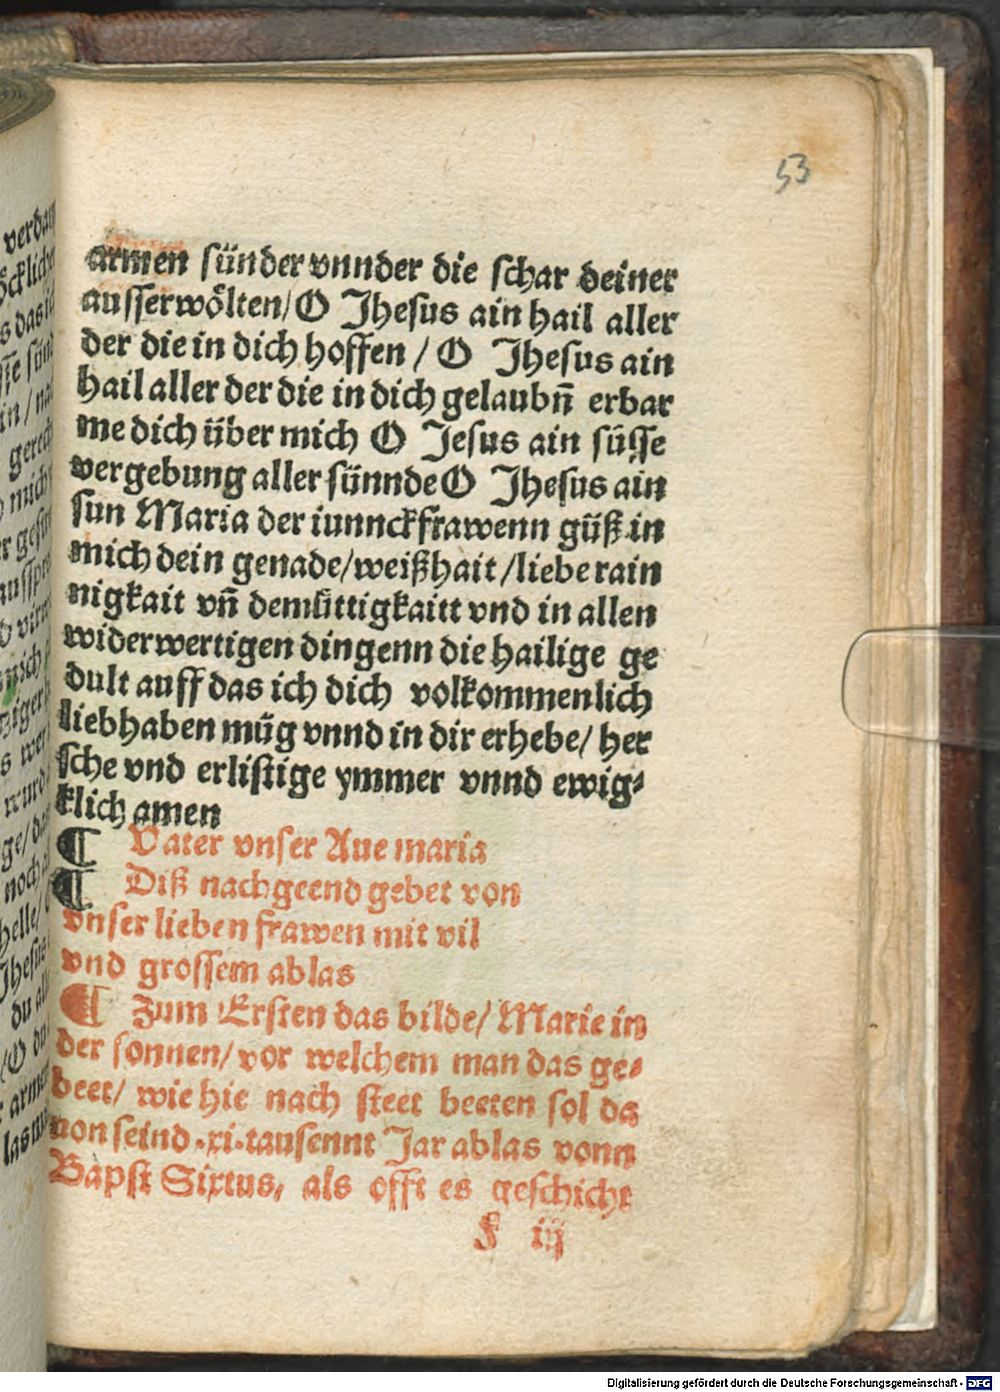 53
armen sünder vnnder die schar deiner
ausserwoͤlten/ O Jhesus ain hail aller
der die in dich hoffen / O Jhesus ain
hail aller der die in dich gelaubn̄ erbar
me dich über mich O Jesus ain süsse
vergebung aller sünnde O Jhesus ain
sun Maria der iunnckfrawenn güß in
mich dein genade/weißhait/liebe rain
nigkait vn̄ demüttigkaitt vnd in allen
widerwertigen dingenn die hailige ge
dult auff das ich dich volkommenlich
liebhaben müg vnnd in dir erhebe/ her
sche vnd erlistige ymmer vnnd ewig⸗
klich amen
¶ Vater vnser Aue maria
¶ Diß nachgeend gebet von
vnser lieben frawen mit vil
vnd grossem ablas
¶ Zum Ersten das bilde/ Marie in
der sonnen/ vor welchem man das ge⸗
beet/ wie hie nach steet beeten sol da
uon seind .xi. tausennt Jar ablas vonn
Bapst Sixtus, als offt es geschicht
f iij
Digitalisierung gefördert durch die Deutsche Forschungsgemeinschaft - DFG